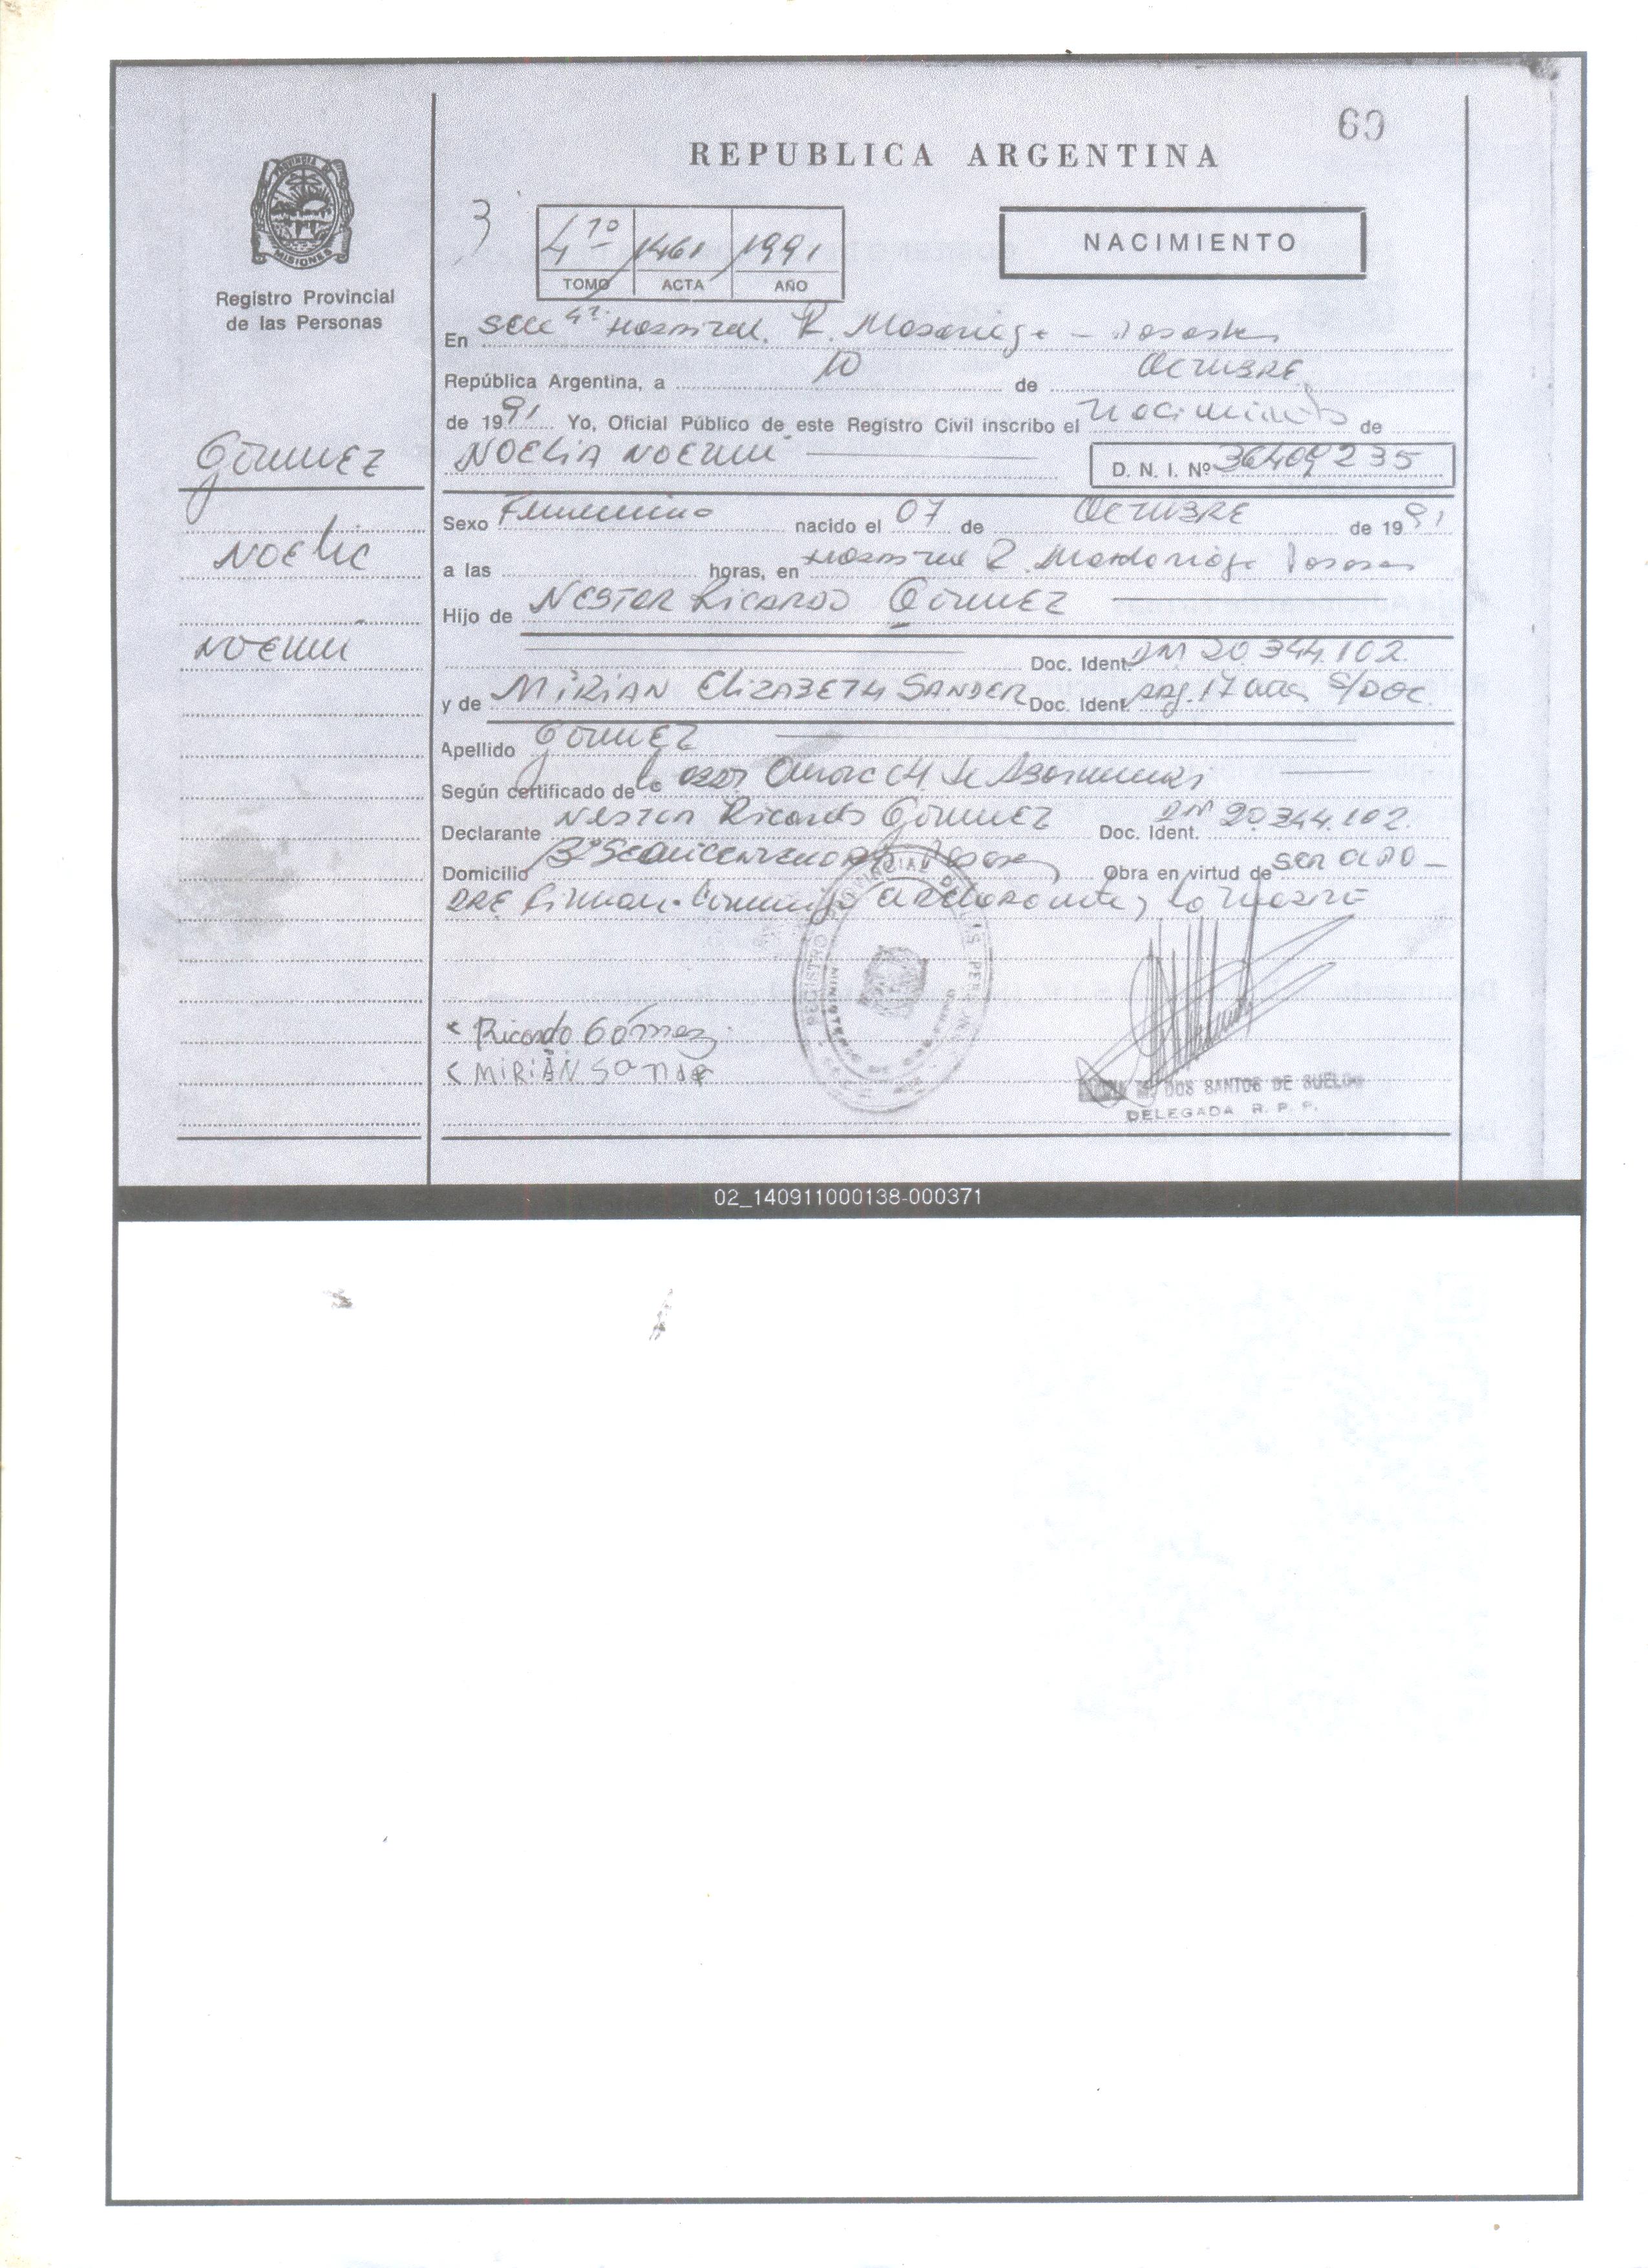 60
REPUBLICA ARGENTINA
PROVINCIA DE
MISIONES
Registro Provincial
de las Personas
3
4to 1461 1991
TOMO ACTA AÑO
NACIMIENTO
En Secc 4ta Hospital R. Madariaga - Posadas
República Argentina, a 10 de OCTUBRE
de 1991 Yo, Oficial Público de este Registro Civil inscribo el nacimiento de
NOELIA NOEMI D. N. I. Nº 36409235
GÓMEZ
NOELIA
NOEMI
Sexo Femenino nacido el 07 de OCTUBRE de 1991
a las horas, en Hospital R. Madariaga Posadas
Hijo de NESTOR RICARDO GÓMEZ
Doc. Ident. DNI 20.344.102.
y de MIRIAN ELIZABETH SANDER Doc. Ident. Arg. 17 años S/DOC.
Apellido GOMEZ
Según certificado de la Obst. de
Declarante Nestor Ricardo GÓMEZ Doc. Ident. DNI 20.344.102.
Domicilio Bº Sesquicentenario Posadas Obra en virtud de ser el PA-
DRE Firman conmigo el declarante y la madre
REGISTRO PROVINCIAL DE LAS PERSONAS
MINISTERIO DE GOBIERNO
Ricardo Gómez
MIRIAN Sander
DOS SANTOS DE SUELDO
DELEGADA R. P. P.
02_140911000138-000371